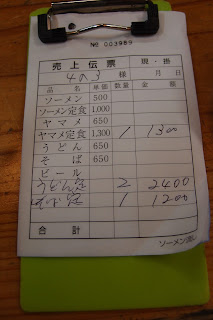 No 003989
売上伝票 現・掛
4の3 様 月 日
品名 単価 数量 金額
ソーメン 500
ソーメン定食 1,000
ヤマメ 650
ヤマメ定食 1,300 1 1300
うどん 650
そば 650
ビール
うどん定 2 2400
そば定 1 1200
合計